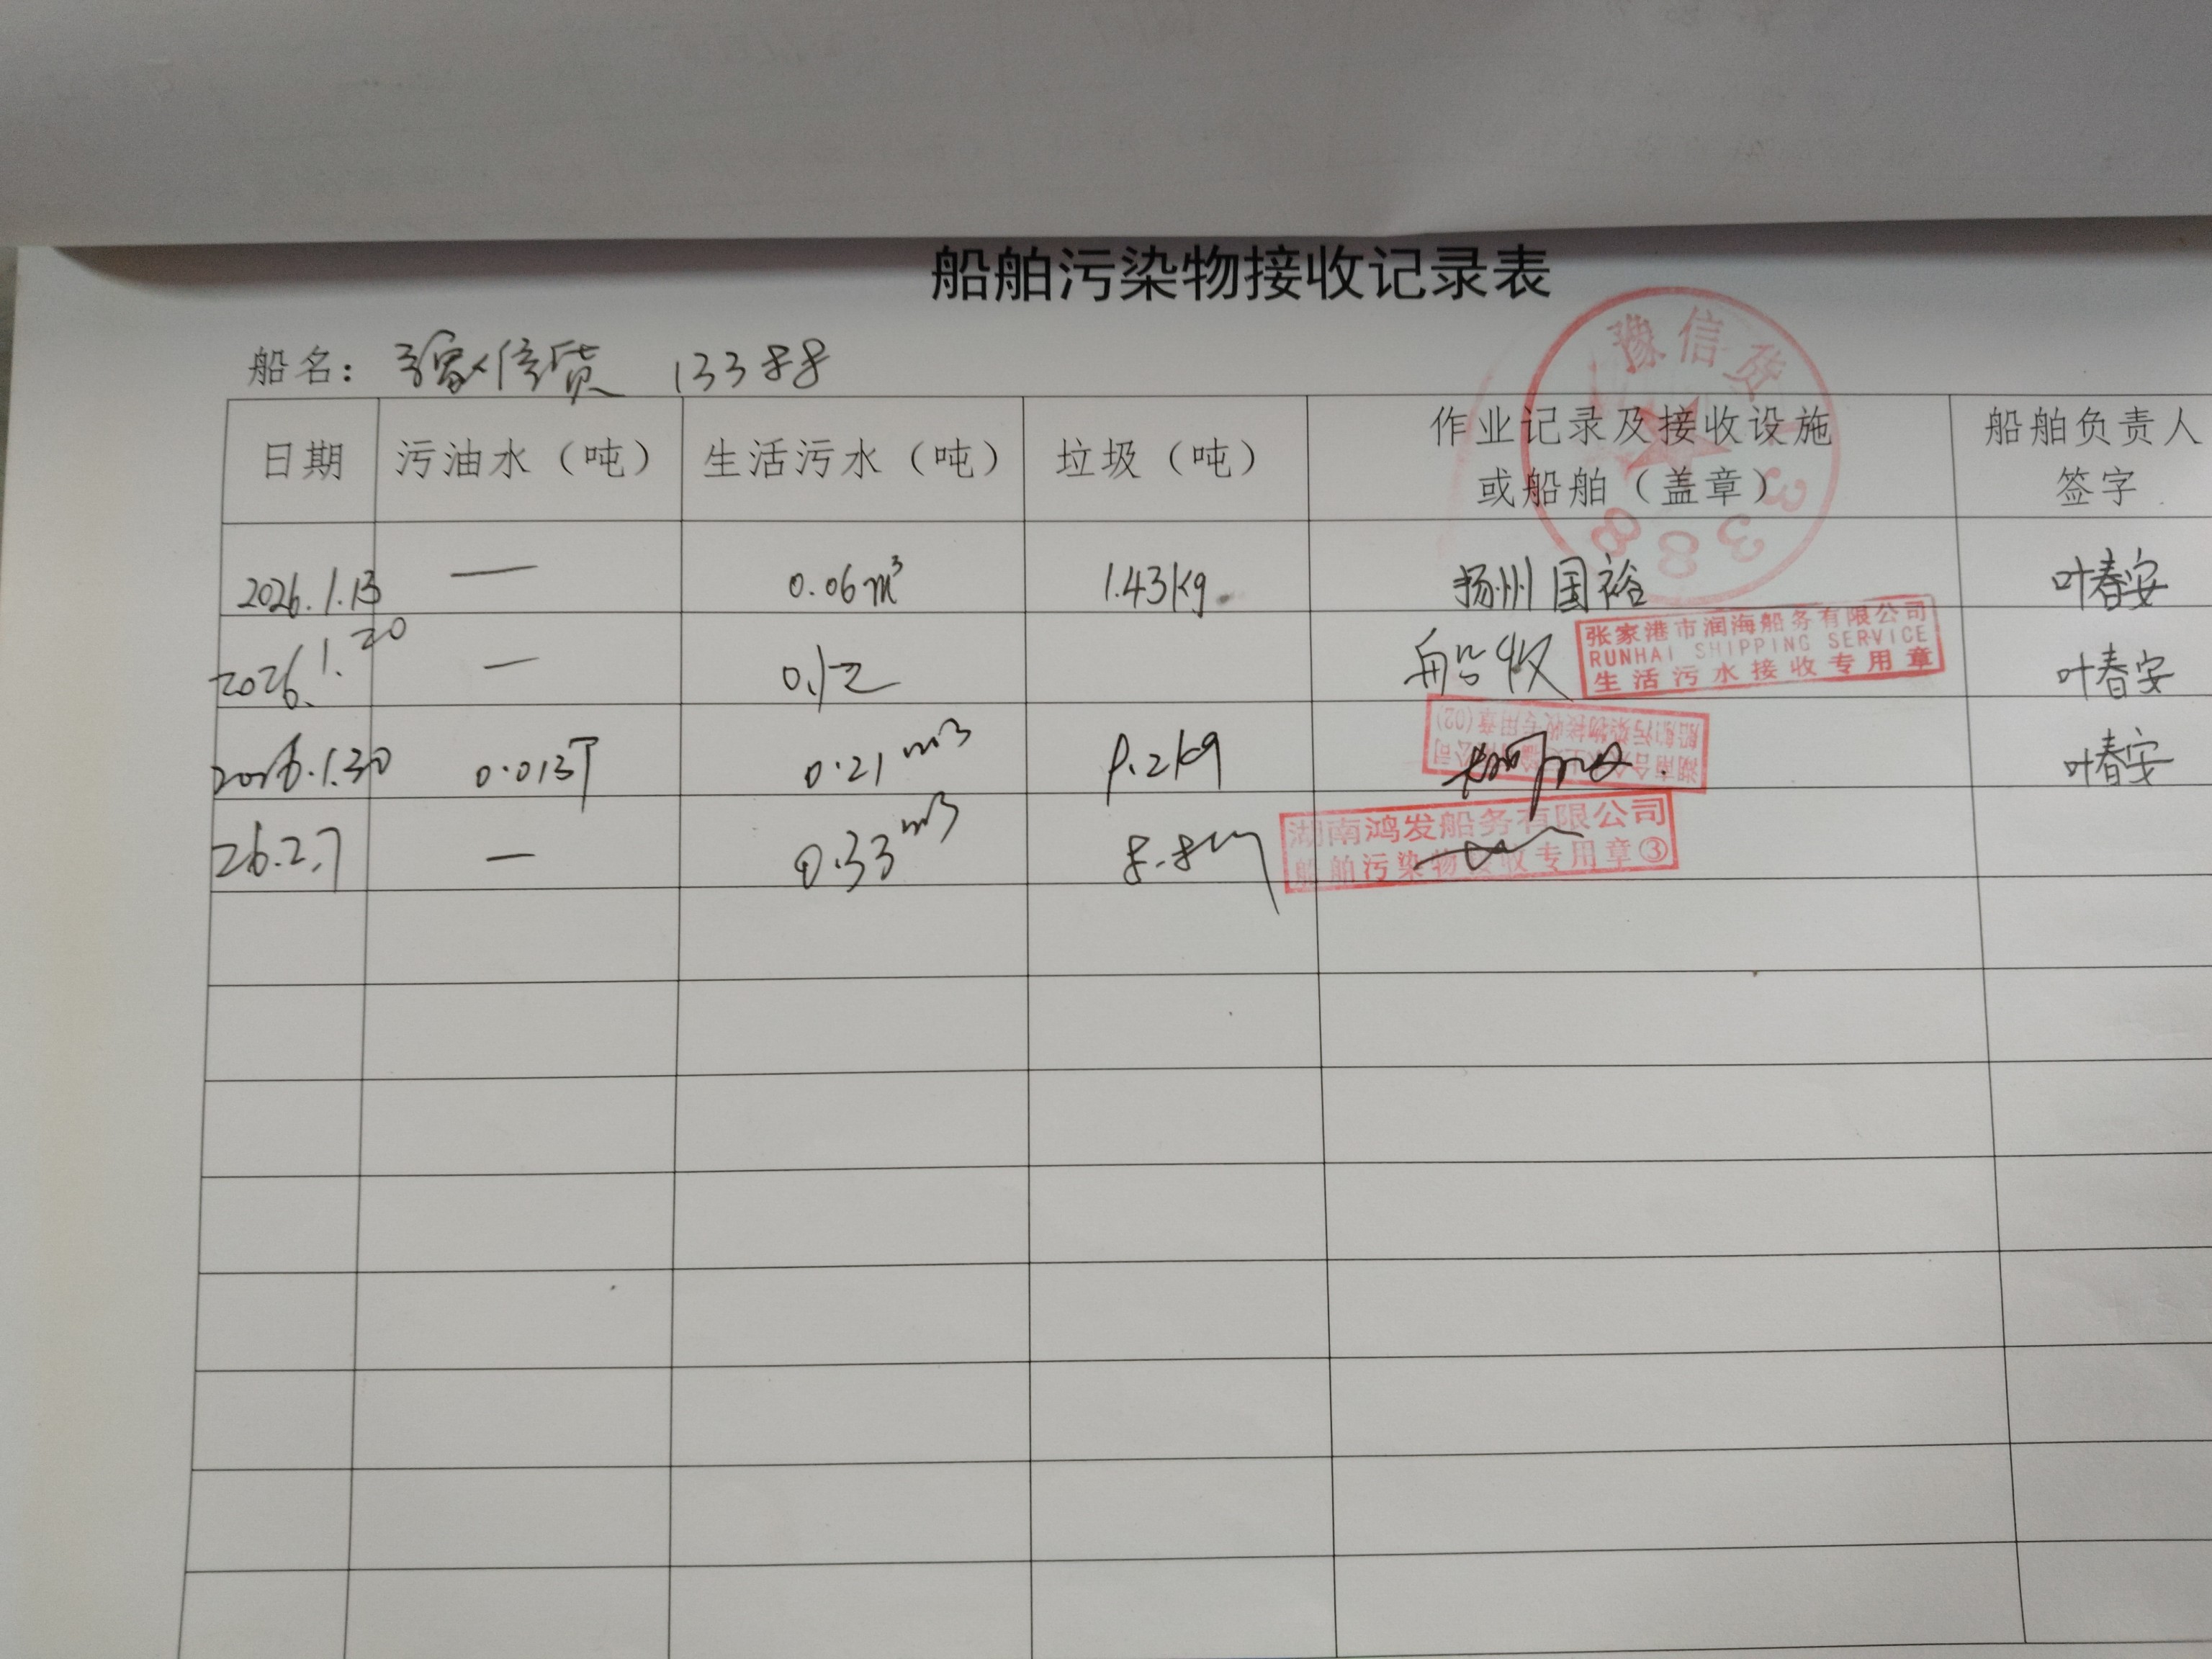 船舶污染物接收记录表
船名： 豫信货 13388
豫信货13388
日期 污油水（吨） 生活污水（吨） 垃圾（吨） 作业记录及接收设施或船舶（盖章） 船舶负责人签字
2026.1.13 — 0.06m³ 1.43kg 扬州国裕 叶春安
2026.1.20 — 0.12 船收 叶春安
张家港市润海船务有限公司
RUNHAI SHIPPING SERVICE
生活污水接收专用章
2026.1.30 0.013T 0.21m3 叶春安
船舶污染物接收专用章(02)
26.2.7 — 0.33m3
湖南鸿发船务有限公司
船舶污染物接收专用章③